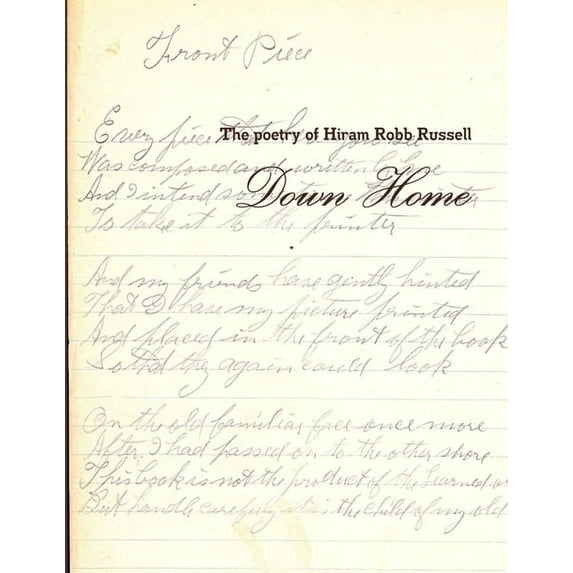 Front Piece
The poetry of Hiram Robb Russell
Down Home
Every piece you see
Was composed and written
And I intend some
To take it to the printer
And my friends have gently hinted
That I have my picture printed
And placed in the front of the book
So that they again could look
On the old familiar face once more
After I had passed on to the other shore
This book is not the product of the learned or
But handle carefuly it is the child of my old